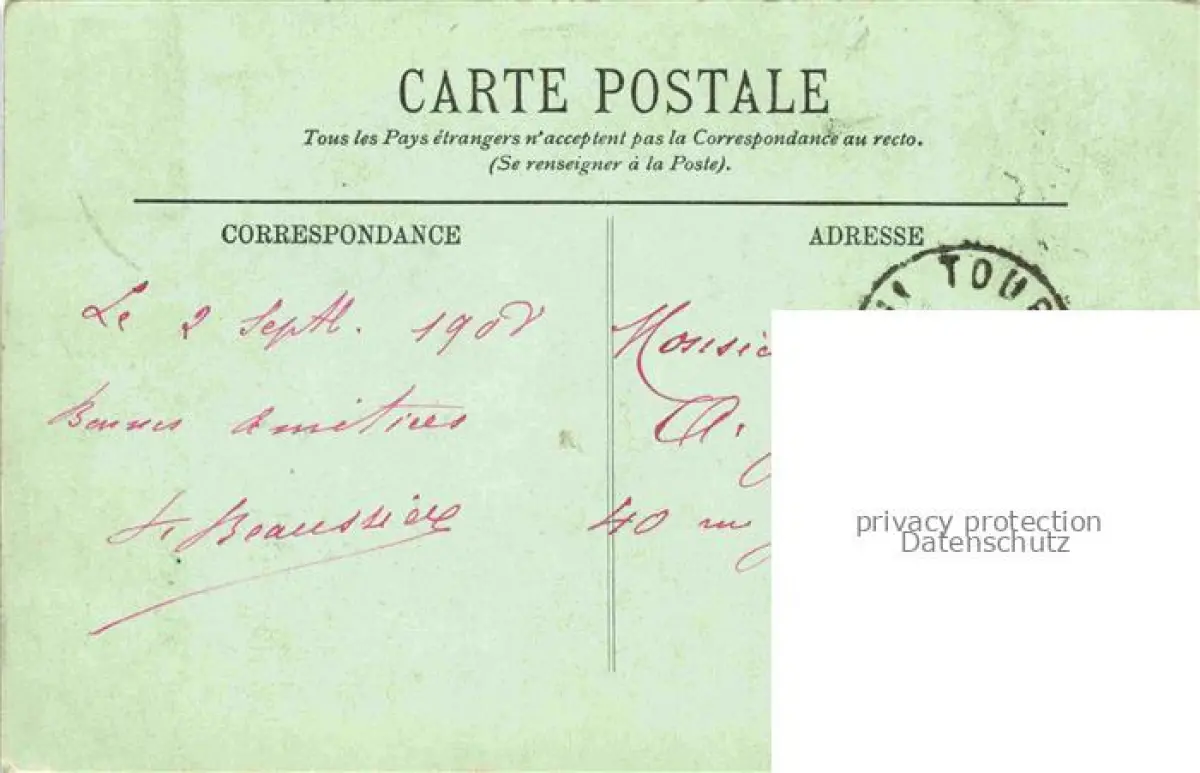 CARTE POSTALE
Tous les Pays étrangers n'acceptent pas la Correspondance au recto.
(Se renseigner à la Poste).
CORRESPONDANCE
Le 2 Sept. 1908
Bonnes Amitiés
ADRESSE
TOU
Monsie
A.
40
privacy protection
Datenschutz